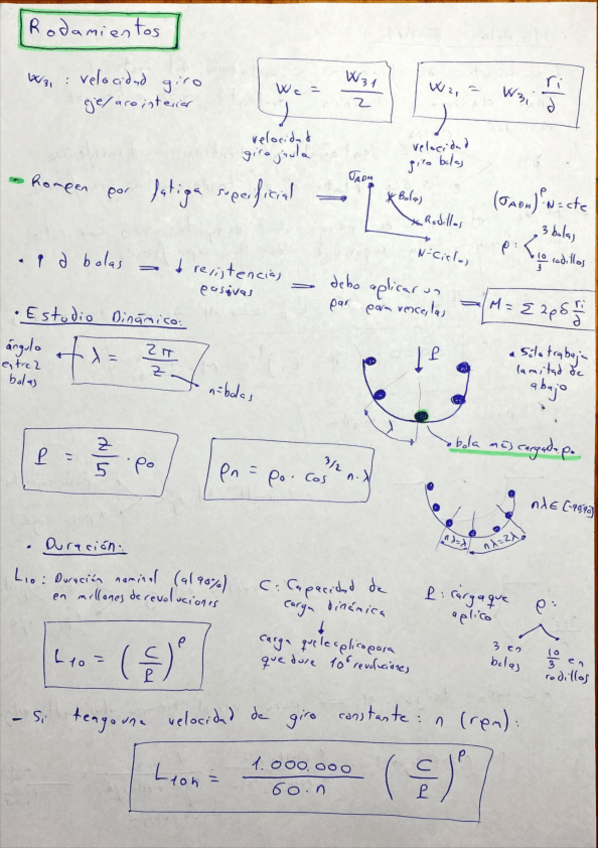 Rodamientos
W31 : velocidad giro
eje/aro interior
Wc = W31 / 2
velocidad
giro jaula
W21 = W31 · ri / d
velocidad
giro bolas
- Rompen por fatiga superficial ⟹
σADM
Bolas
Rodillos
N=Ciclos
(σADM)^p · N = cte
p : 3 bolas
10/3 rodillos
· ↑ d bolas ⟹ ↓ resistencias
pasivas
⟹ debo aplicar un
par para vencerlas
⟹ M = Σ 2ρδ ri/d
· Estudio Dinámico:
ángulo
entre 2
bolas
λ = 2π / z
n=bolas
P
λ
• Sólo trabaja
la mitad de
abajo
bola más cargada p0
P = z/5 · p0
pn = p0 · cos^3/2 n·λ
nλ=λ
nλ=2λ
nλ∈[-90,90]
· Duración:
L10 : Duración nominal (al 90%)
en millones de revoluciones
C : Capacidad de
carga dinámica
↓
carga que le aplico para
que dure 10^6 revoluciones
P : carga que
aplico
p :
3 en
bolas
10/3 en
rodillos
L10 = (C/P)^p
- Si tengo una velocidad de giro constante: n (rpm):
L10h = 1.000.000 / 60·n (C/P)^p